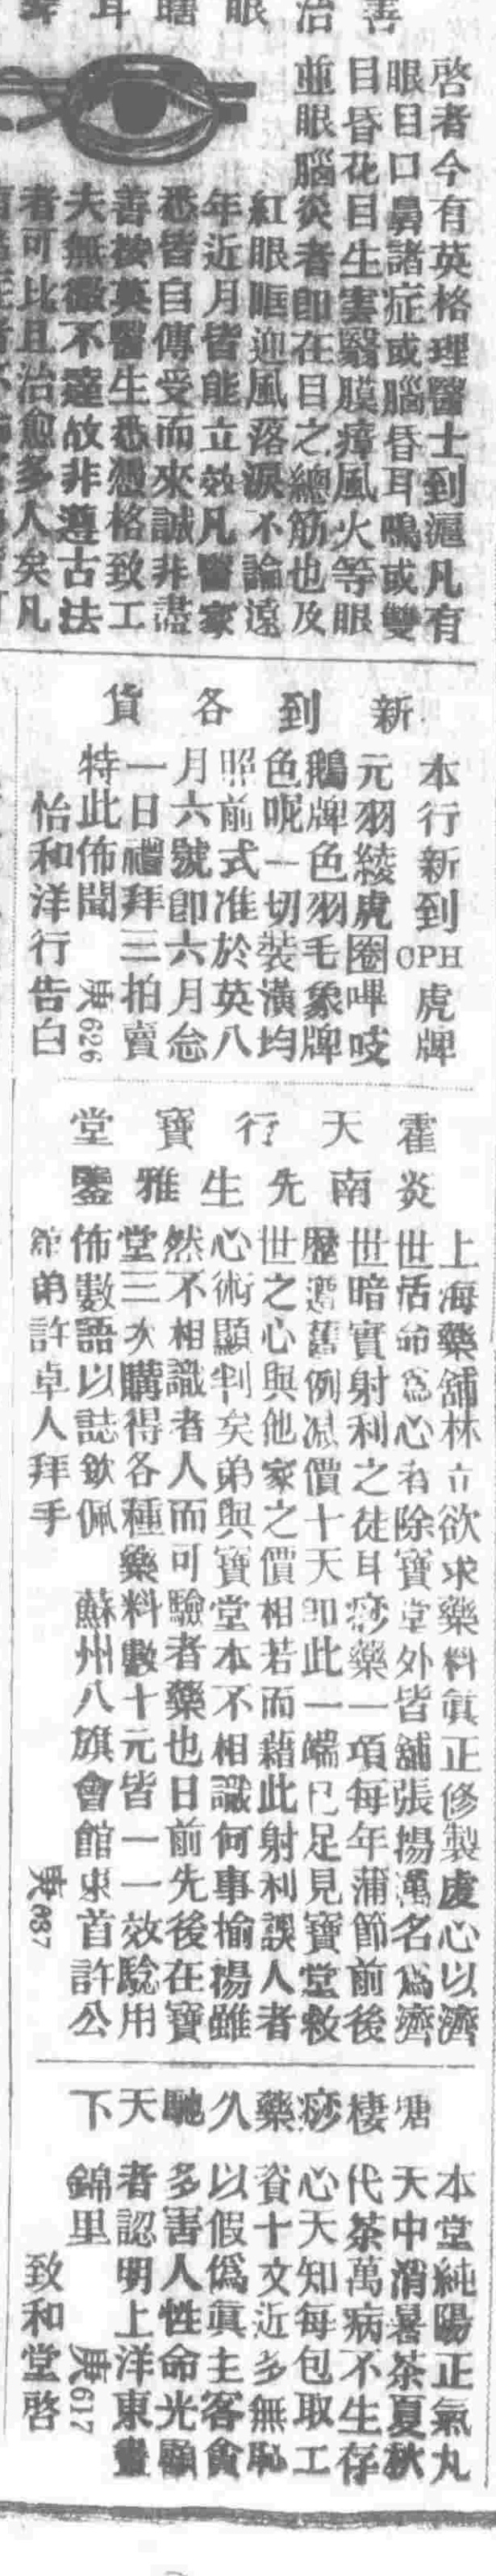 善治眼瞎耳聾
啓者今有英格理醫士到滬凡有
眼目口鼻諸症或腦昏耳鳴或雙
目昏花目生雲翳膜瘴風火等眼
並眼腦炎者即在目之總筋也及
紅眼眶迎風落淚不論遠
年近月皆能立效凡醫家
悉皆自傳受而來誠非盡
善按英醫生悉憑格致工
夫無微不達故非遵古法
者可比且治愈多人矣凡
新到各貨
本行新到CPH虎牌
元羽綾虎圈嗶吱
鵝牌色羽毛象牌
色呢一切裝潢均
照前式准於英八
月六號即六月念
一日禮拜三拍賣
特此佈聞 庚626
怡和洋行告白
霍天行寶堂
炎南先生雅鑒
上海藥舖林立欲求藥料眞正修製虔心以濟
世活命爲心者除寶堂外皆舖張揚萬名爲濟
世暗實射利之徒耳痧藥一項每年蒲節前後
歷遵舊例減價十天即此一端已足見寶堂救
世之心與他家之價相若而藉此射利誤人者
心術顯判矣弟與寶堂本不相識何事揄揚雖
然不相識者人而可驗者藥也日前先後在寶
堂三次購得各種藥料數十元皆一一效驗用
佈數語以誌欽佩 蘇州八旗會館東首許公
弟許卓人拜手 庚637
塘棲痧藥久馳天下
本堂純陽正氣丸
天中消暑茶夏秋
代茶萬病不生存
心天知每包取工
資十文近多無恥
以假僞眞主客貪
多害人性命光顧
者認明上洋東畫
錦里 庚617
致和堂啓